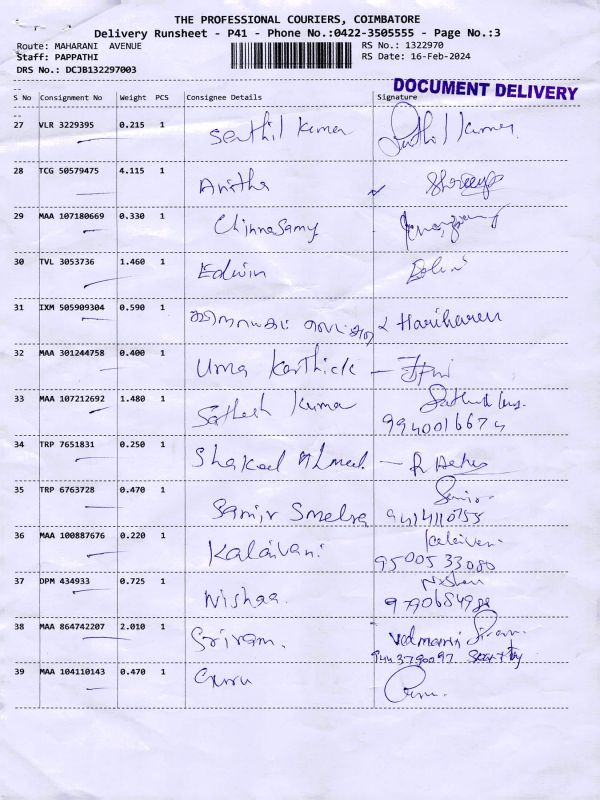 THE PROFESSIONAL COURIERS, COIMBATORE
Delivery Runsheet - P41 - Phone No.:0422-3505555 - Page No.:3
Route: MAHARANI AVENUE
RS No.: 1322970
Staff: PAPPATHI
RS Date: 16-Feb-2024
DRS No.: DCJB132297003
DOCUMENT DELIVERY
S No Consignment No Weight PCS Consignee Details Signature
27 VLR 3229395 0.215 1 Senthil Kumar
28 TCG 50579475 4.115 1 Anitha
29 MAA 107180669 0.330 1 Chinnasamy
30 TVL 3053736 1.460 1 Edwin Edwin
31 IXM 505909304 0.590 1 Hariharan
32 MAA 301244758 0.400 1 Uma Karthick
33 MAA 107212692 1.480 1 Sathesh Kumar
9940016674
34 TRP 7651831 0.250 1 Shakeel Ahmed
35 TRP 6763728 0.470 1 Samir
36 MAA 100887676 0.220 1 Kalaivani Kalaivani
9500533080
37 DPM 434933 0.725 1 Nishaa.
38 MAA 864742207 2.010 1 Sriram.
39 MAA 104110143 0.470 1 Guru